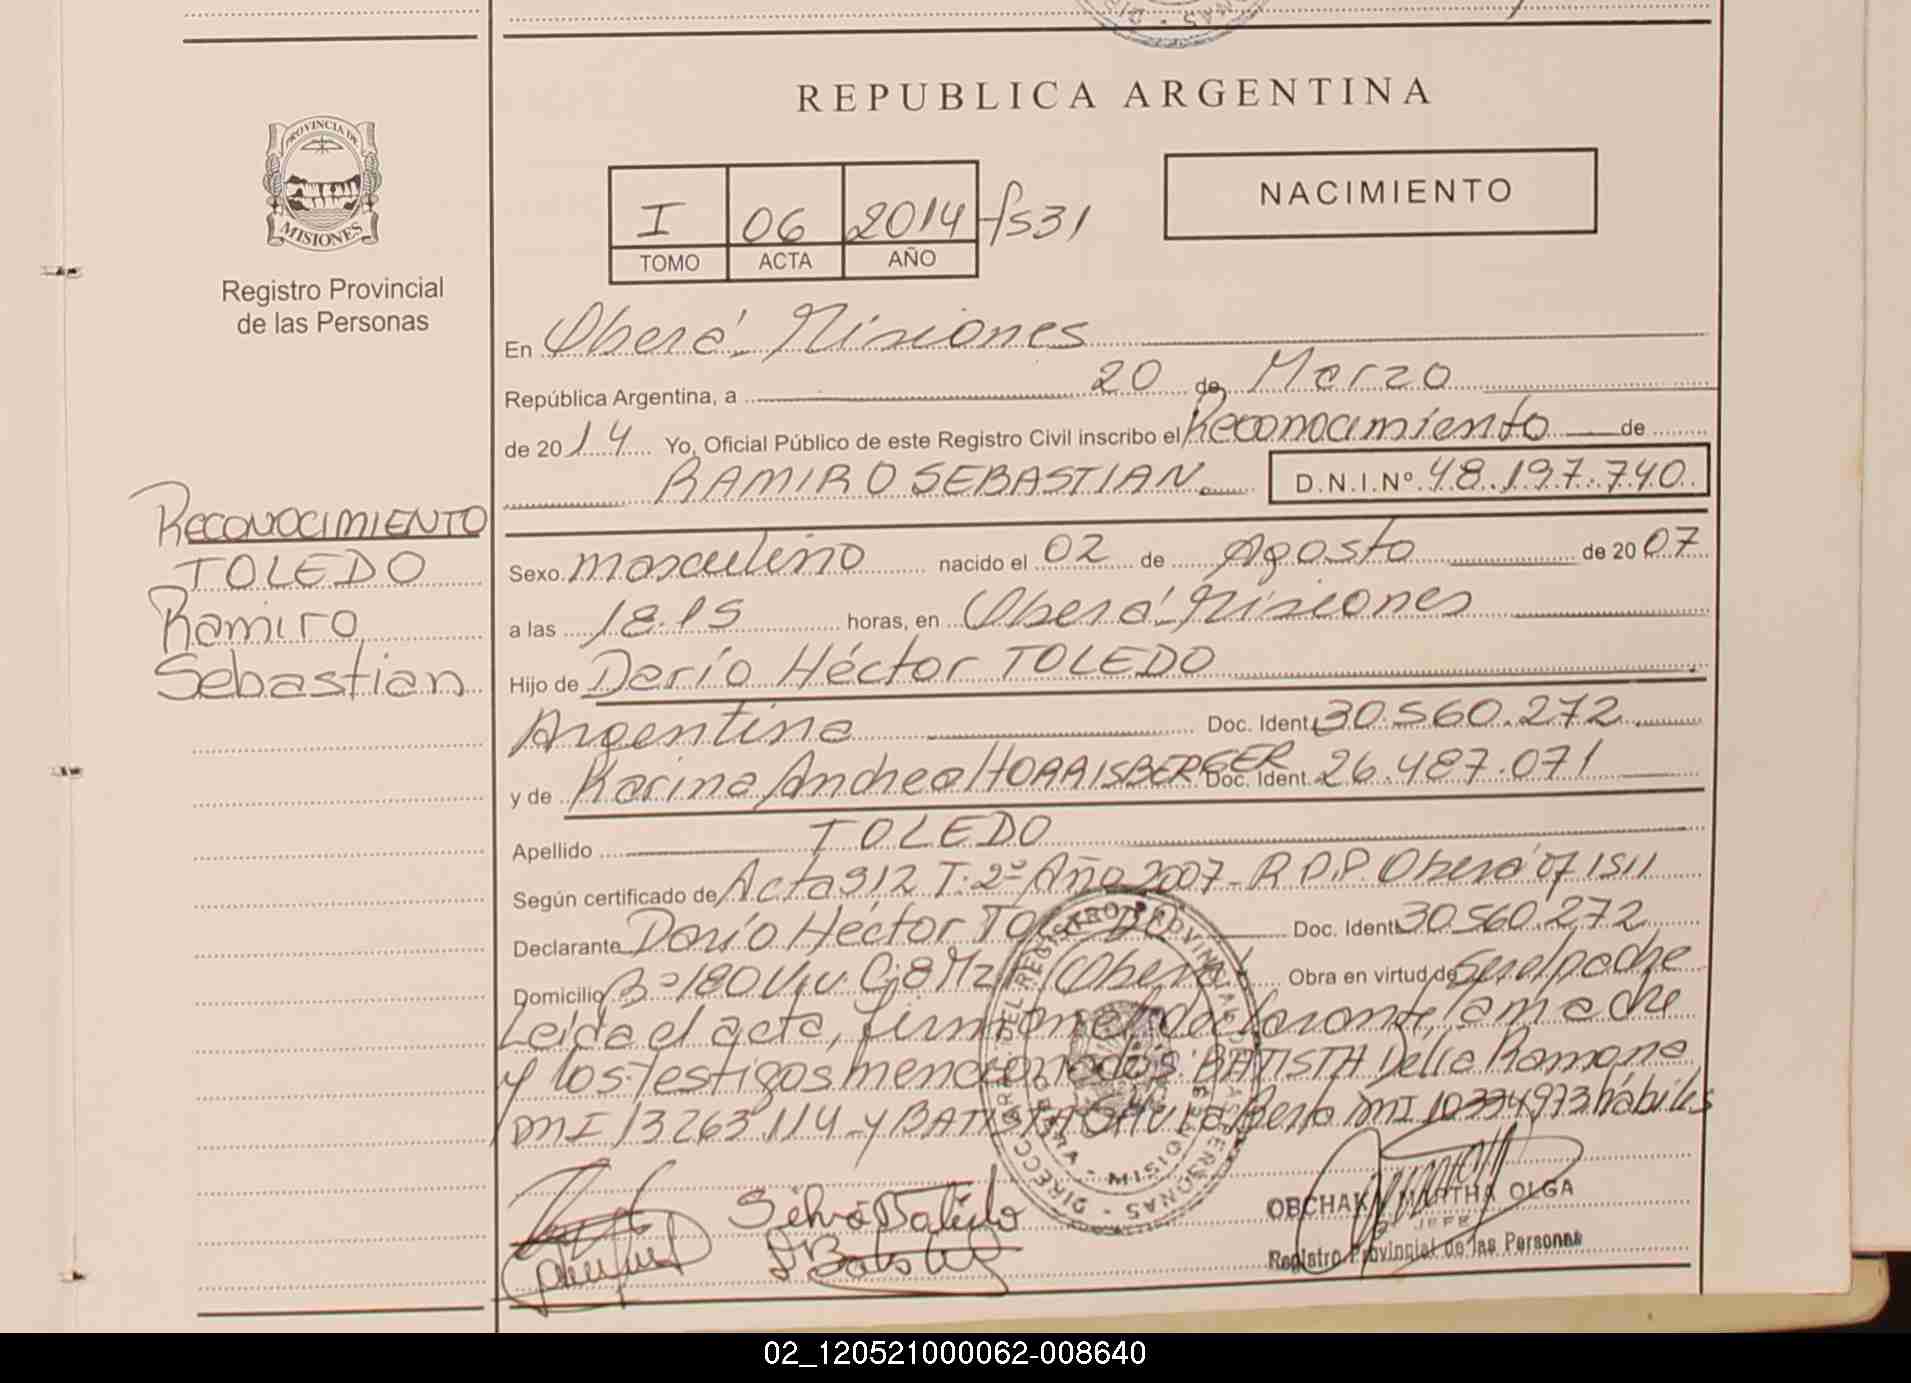 REPUBLICA ARGENTINA
PROVINCIA DE
MISIONES
Registro Provincial
de las Personas
I 06 2014 fs31
TOMO ACTA AÑO
NACIMIENTO
En Oberá - Misiones
República Argentina, a 20 de Marzo
de 2014 Yo, Oficial Público de este Registro Civil inscribo el Reconocimiento de
RAMIRO SEBASTIAN D.N.I.Nº 48.197.740
RECONOCIMIENTO
TOLEDO
Ramiro
Sebastian
Sexo masculino nacido el 02 de Agosto de 2007
a las 18.15 horas, en Oberá - Misiones
Hijo de Darío Héctor TOLEDO
Argentina Doc. Ident. 30.560.272
y de Karina Andrea HORRISBERGER Doc. Ident. 26.487.071
Apellido TOLEDO
Según certificado de Acta 912 T. 2º Año 2007 - R.P.P. Oberá of 1511
Declarante Darío Héctor TOLEDO Doc. Ident. 30.560.272
Domicilio Bº 180 Viv. C: 8 Mz Oberá Obra en virtud de Ser el padre
Leída el acta, firman el declarante, la madre
y los testigos mencionados: BATISTA Delia Ramona
DNI 13263114 y BATISTA Berta DNI 10334973 hábiles
DIRECC. GRAL. DEL REGISTRO PROVINCIAL DE LAS PERSONAS
OBERA - MISIONES
Silva Batista
OBCHAK MARTHA OLGA
JEFE
Registro Provincial de las Personas
02_120521000062-008640